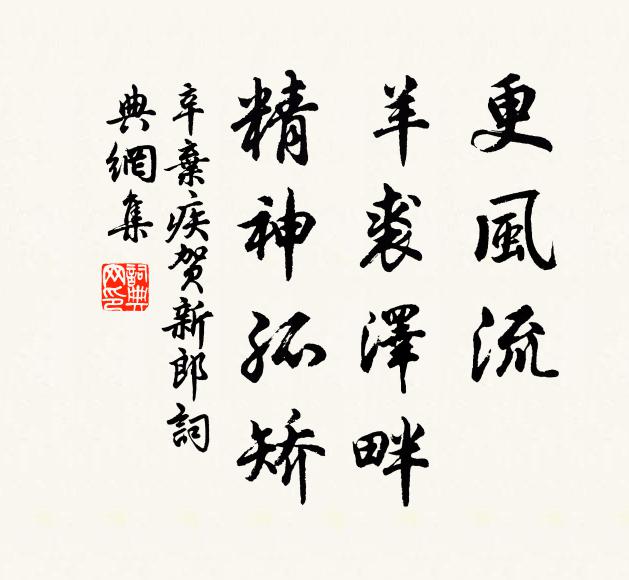 更風流
羊裘澤畔
精神孤矯
辛棄疾賀新郎詞
典網集
詞典
网印